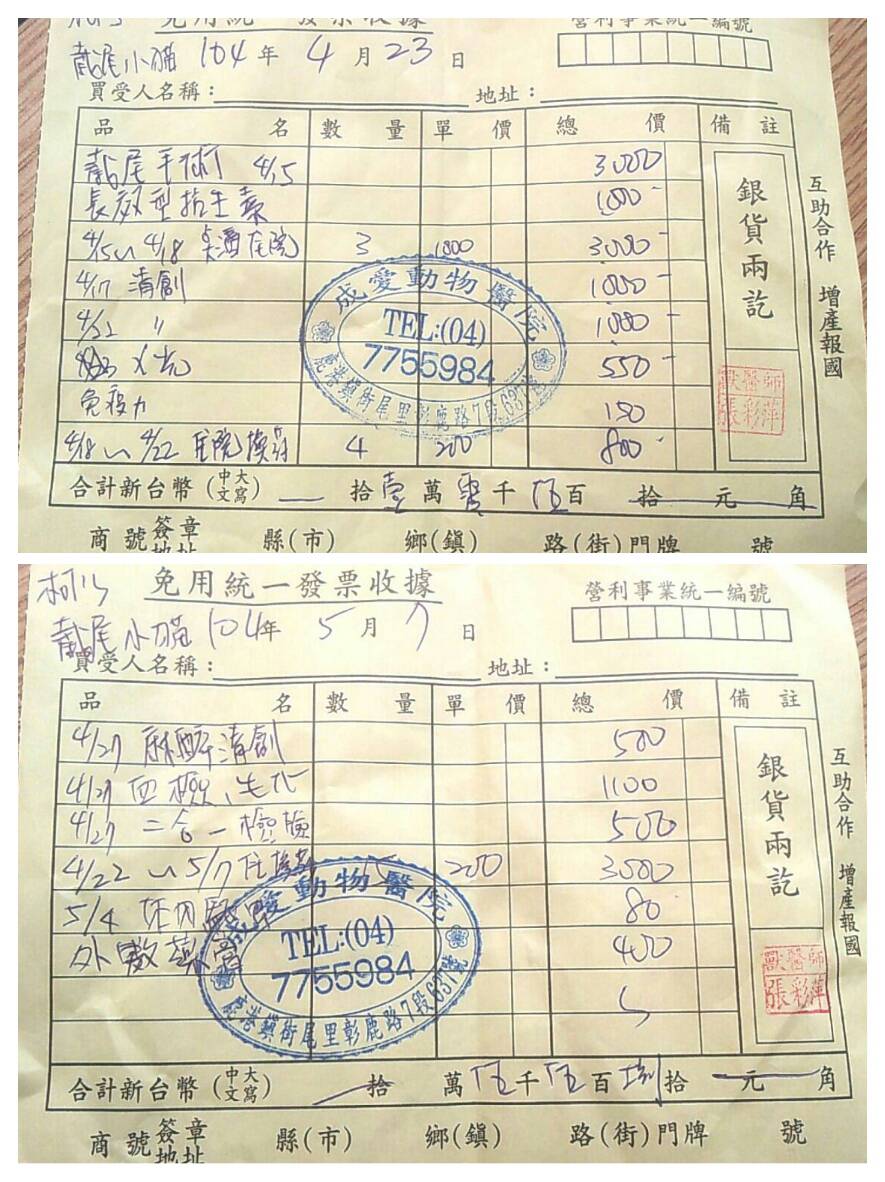 免用統一發票收據
營利事業統一編號
截尾小貓 104年 4月 23日
買受人名稱： 地址：
品名 數量 單價 總價 備註
截尾手術 4/15 3000
長效型抗生素 1000
4/15~4/18 住院 3 1000 3000
4/17 清創 1000
4/22 〃 1000
X光 550
免疫力 150
4/18~4/22 住院換葯 4 200 800
銀貨兩訖
互助合作 增產報國
成愛動物醫院
TEL:(04)
7755984
鹿港鎮街尾里彰鹿路7段637號
獸醫師
張彩萍
合計新台幣(中文大寫) 拾壹萬零千伍百拾元角
商號簽章地址 縣(市) 鄉(鎮) 路(街)門牌 號
免用統一發票收據
營利事業統一編號
截尾小貓 104年 5月 7日
買受人名稱： 地址：
品名 數量 單價 總價 備註
4/27 麻醉清創 500
4/27 血檢、生化 1100
4/27 二合一檢驗 500
4/22~5/7 住換葯 15 200 3000
5/4 80
外敷藥膏 400
銀貨兩訖
互助合作 增產報國
成愛動物醫院
TEL:(04)
7755984
鹿港鎮街尾里彰鹿路7段637號
獸醫師
張彩萍
合計新台幣(中文大寫) 拾萬伍千伍百捌拾元角
商號簽章地址 縣(市) 鄉(鎮) 路(街)門牌 號